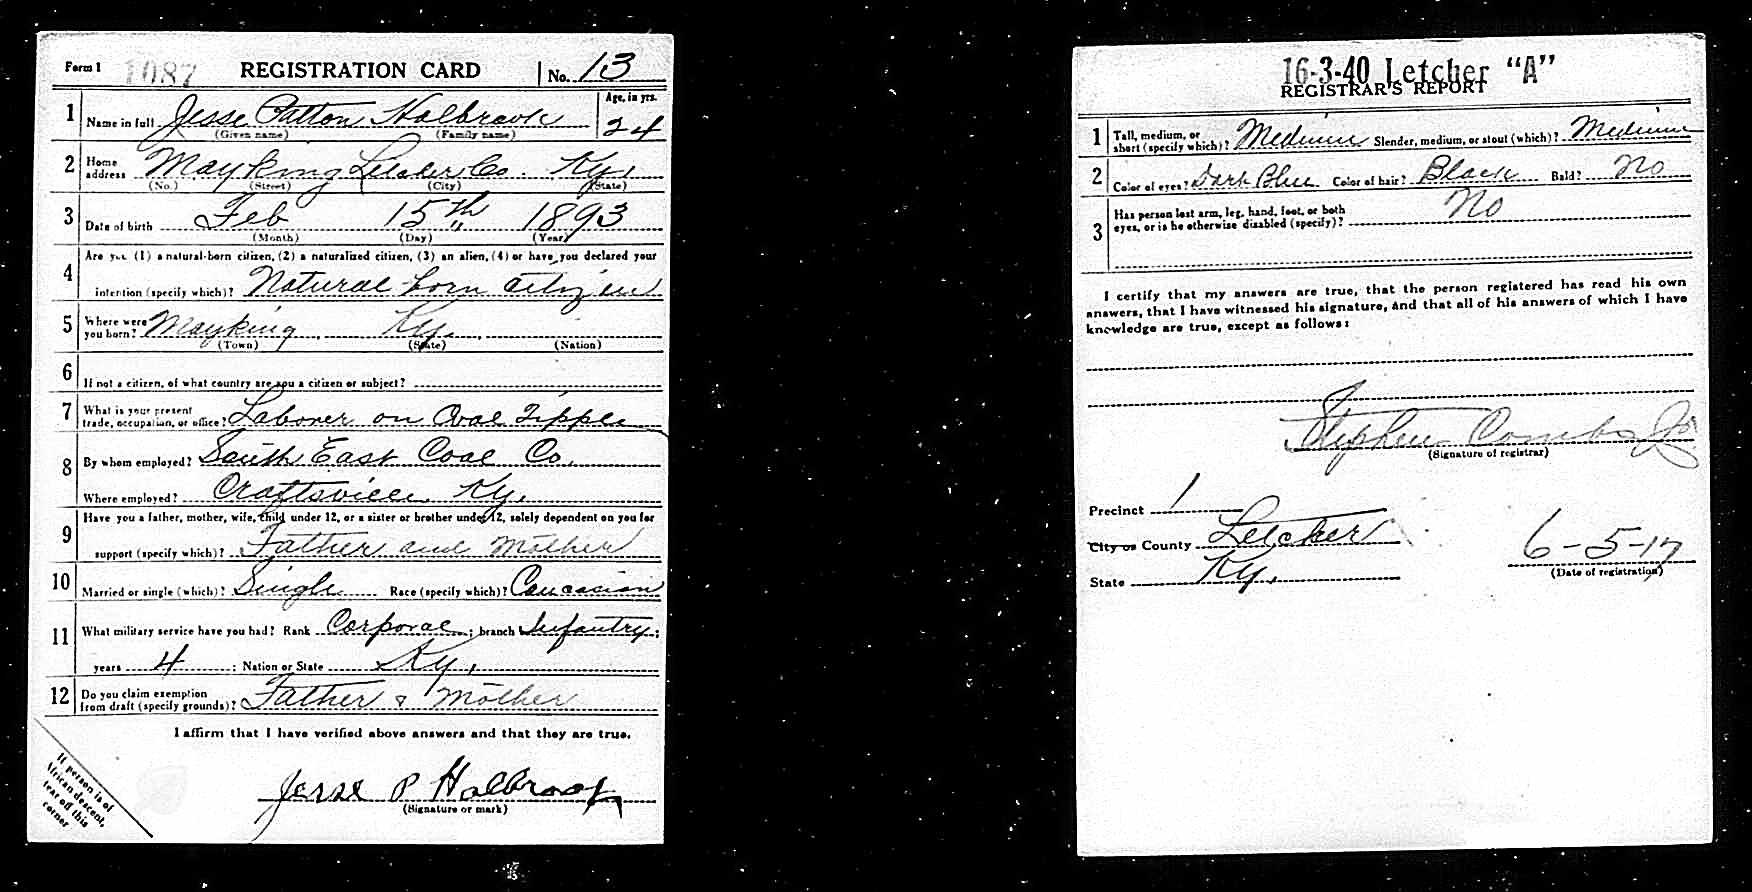 Form 1 1087 REGISTRATION CARD No. 13
1 Name in full Jesse Patton Holbrook Age, in yrs. 24
(Given name) (Family name)
2 Home address Mayking Letcher Co. Ky.
(No.) (Street) (City) (State)
3 Date of birth Feb 15th 1893
(Month) (Day) (Year)
4 Are you (1) a natural-born citizen, (2) a naturalized citizen, (3) an alien, (4) or have you declared your
intention (specify which)? Natural born citizen
5 Where were you born? Mayking Ky.
(Town) (State) (Nation)
6 If not a citizen, of what country are you a citizen or subject?
7 What is your present trade, occupation, or office? Laborer on Coal Tipple
8 By whom employed? South East Coal Co.
Where employed? Craftsville Ky.
9 Have you a father, mother, wife, child under 12, or a sister or brother under 12, solely dependent on you for
support (specify which)? Father and Mother
10 Married or single (which)? Single Race (specify which)? Caucasian
11 What military service have you had? Rank Corporal ; branch Infantry ;
years 4 ; Nation or State Ky.
12 Do you claim exemption from draft (specify grounds)? Father & Mother
I affirm that I have verified above answers and that they are true.
Jesse P Holbrook
(Signature or mark)
If person is of
African descent,
tear off this
corner
16-3-40 Letcher "A"
REGISTRAR'S REPORT
1 Tall, medium, or short (specify which)? Medium Slender, medium, or stout (which)? Medium
2 Color of eyes? Dark Blue Color of hair? Black Bald? No
3 Has person lost arm, leg, hand, foot, or both eyes, or is he otherwise disabled (specify)? No
I certify that my answers are true, that the person registered has read his own
answers, that I have witnessed his signature, and that all of his answers of which I have
knowledge are true, except as follows:
Stephen Combs Jr
(Signature of registrar)
Precinct 1
City or County Letcher
State Ky.
6-5-17
(Date of registration)